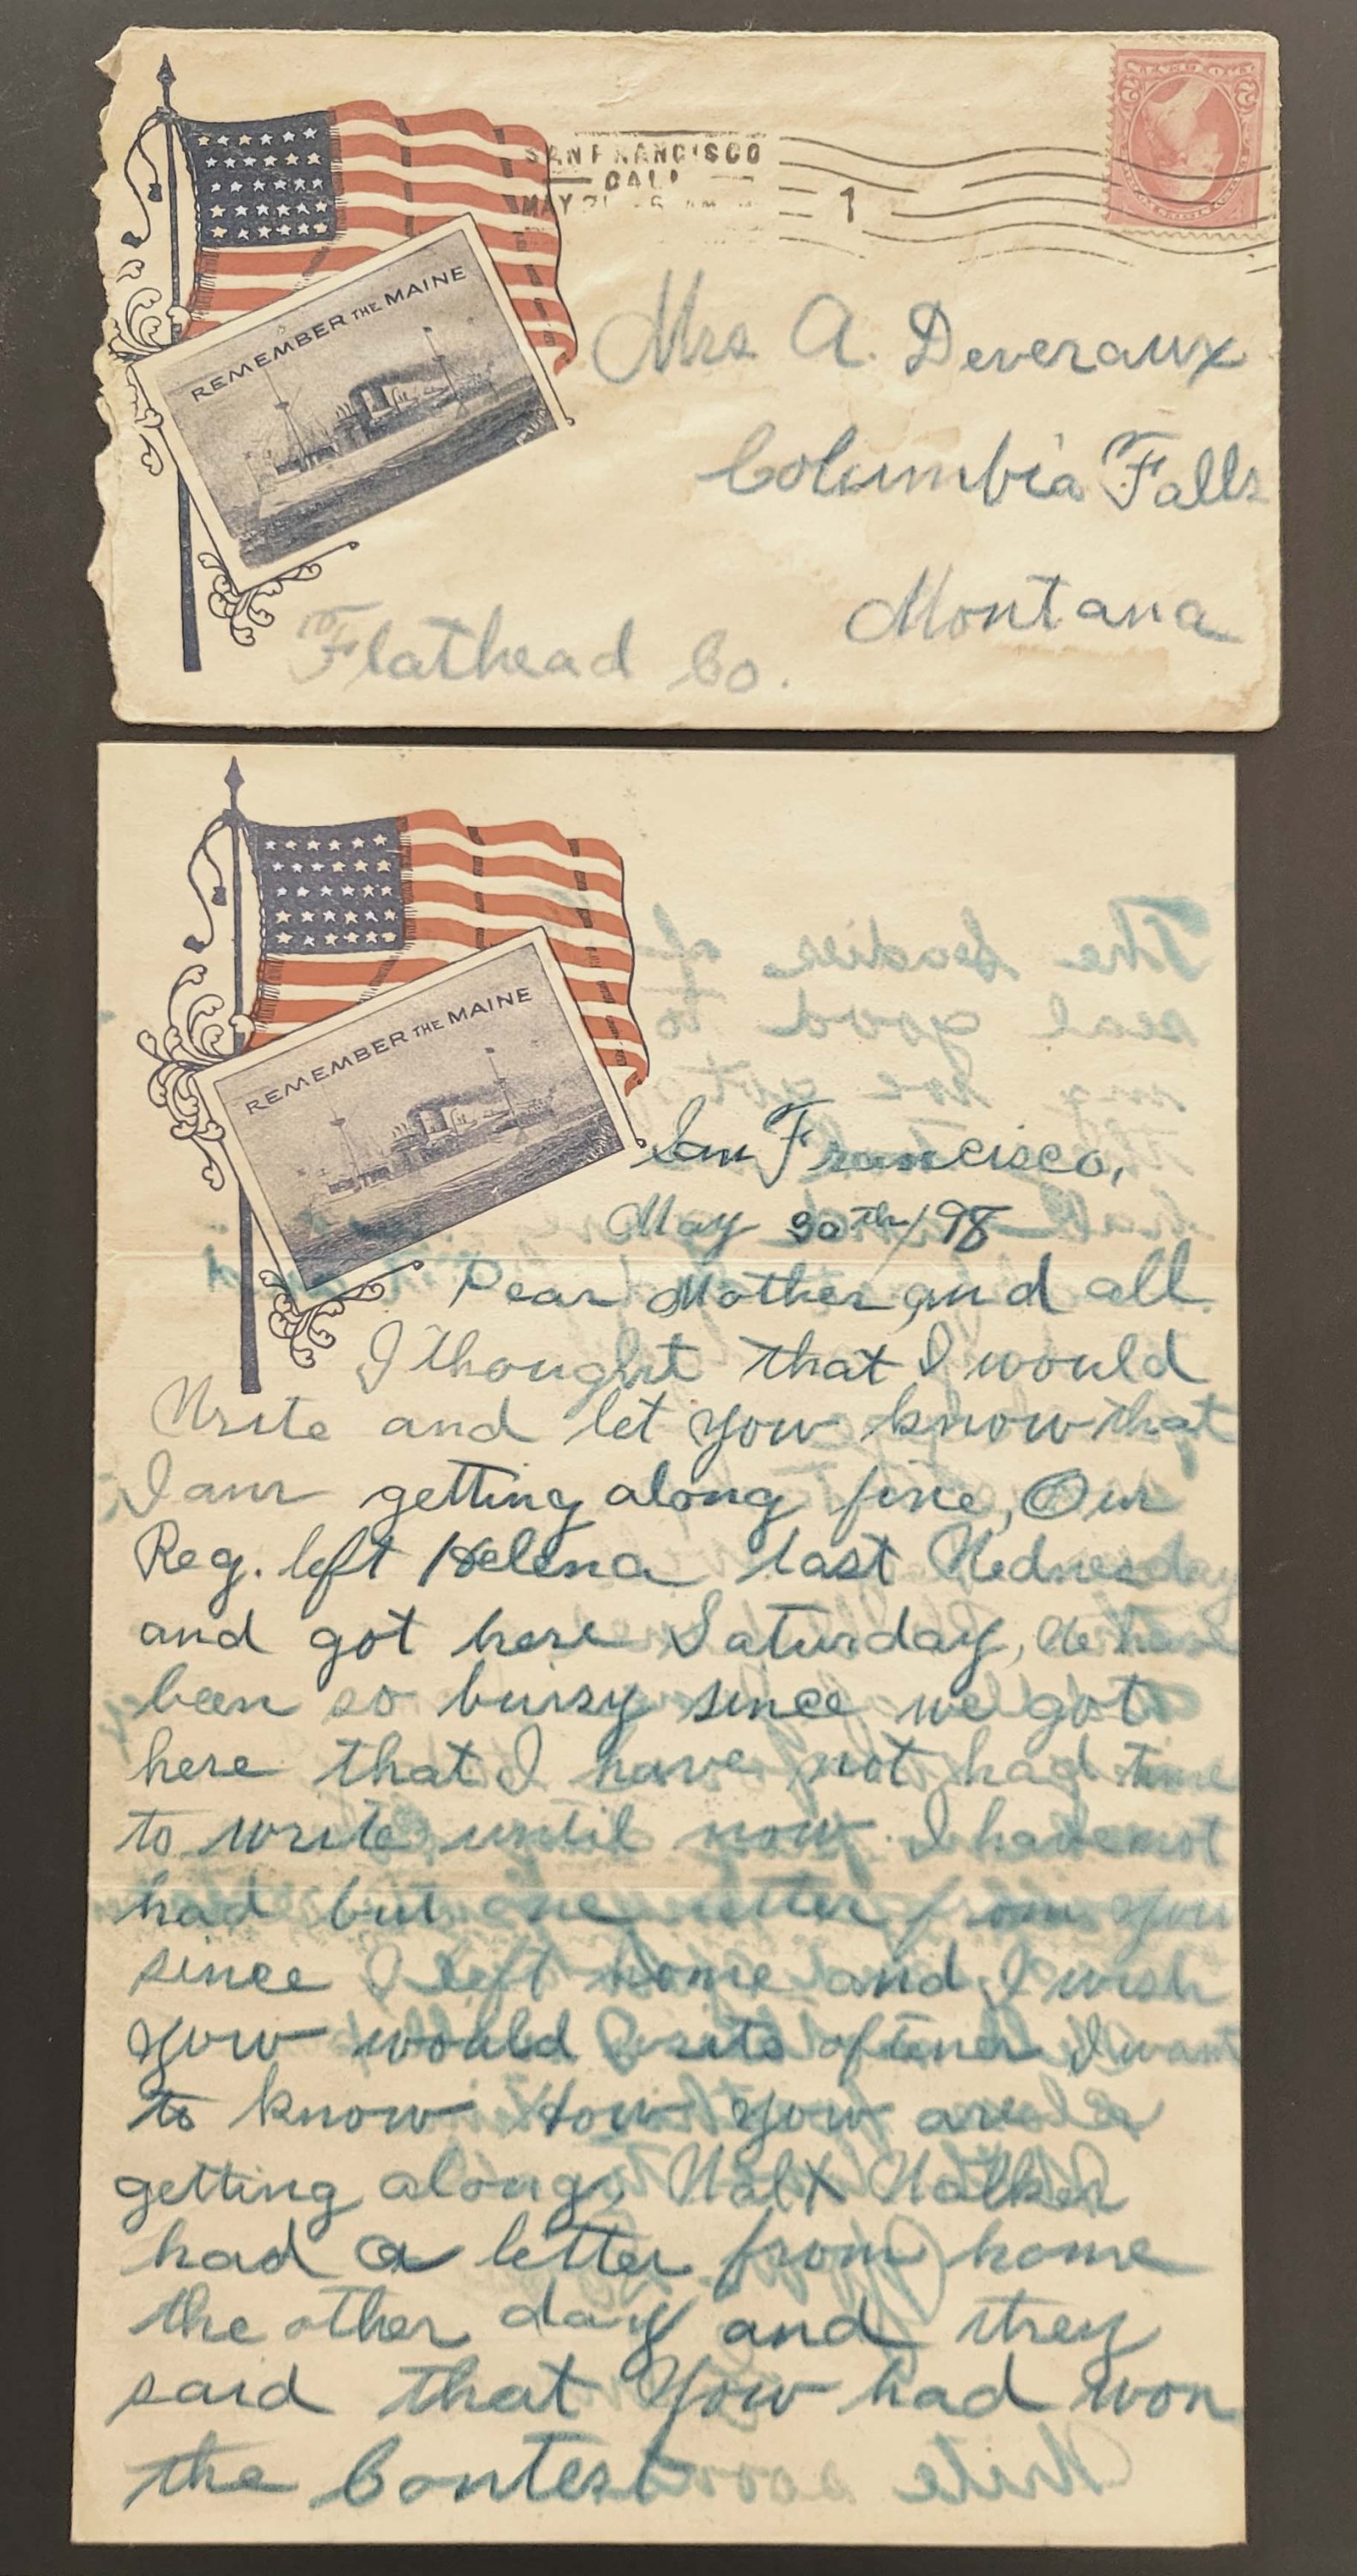 SAN FRANCISCO
CAL!
MAY 31
1
2 2
REMEMBER THE MAINE
Mrs A. Deveraux
Columbia Falls
Montana
Flathead Co.
REMEMBER THE MAINE
San Francisco,
May 30th/98
Dear Mother, and all
I thought that I would
Write and let you know that
I am getting along fine, Our
Reg. left Helena last Wednesday
and got here Saturday, We have
been so buisy since we got
here that I have not had time
to write until now. I have not
had but one letter from you
since I left home and I wish
you would write oftener I want
to know How you are
getting along, Walt Walker
had a letter from home
the other day and they
said that You had won
the Contest
The Ladies of
real good to
we got
Write soon